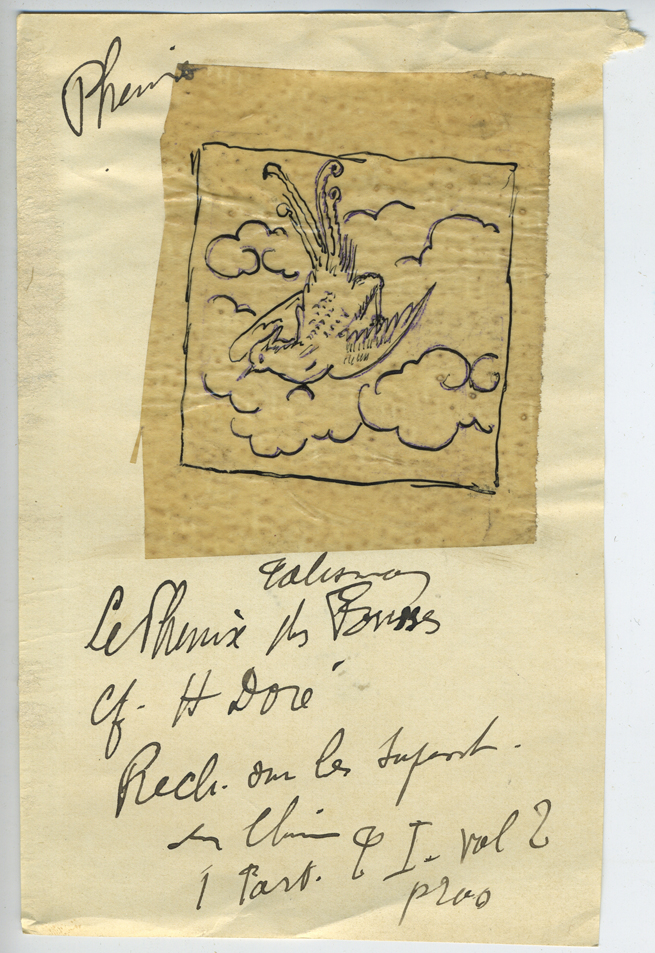 Phenix
talisman
Le Phenix des
cf. H Doré
Rech. sur les superst.
en Chine I. vol 2
1 Part.
p200